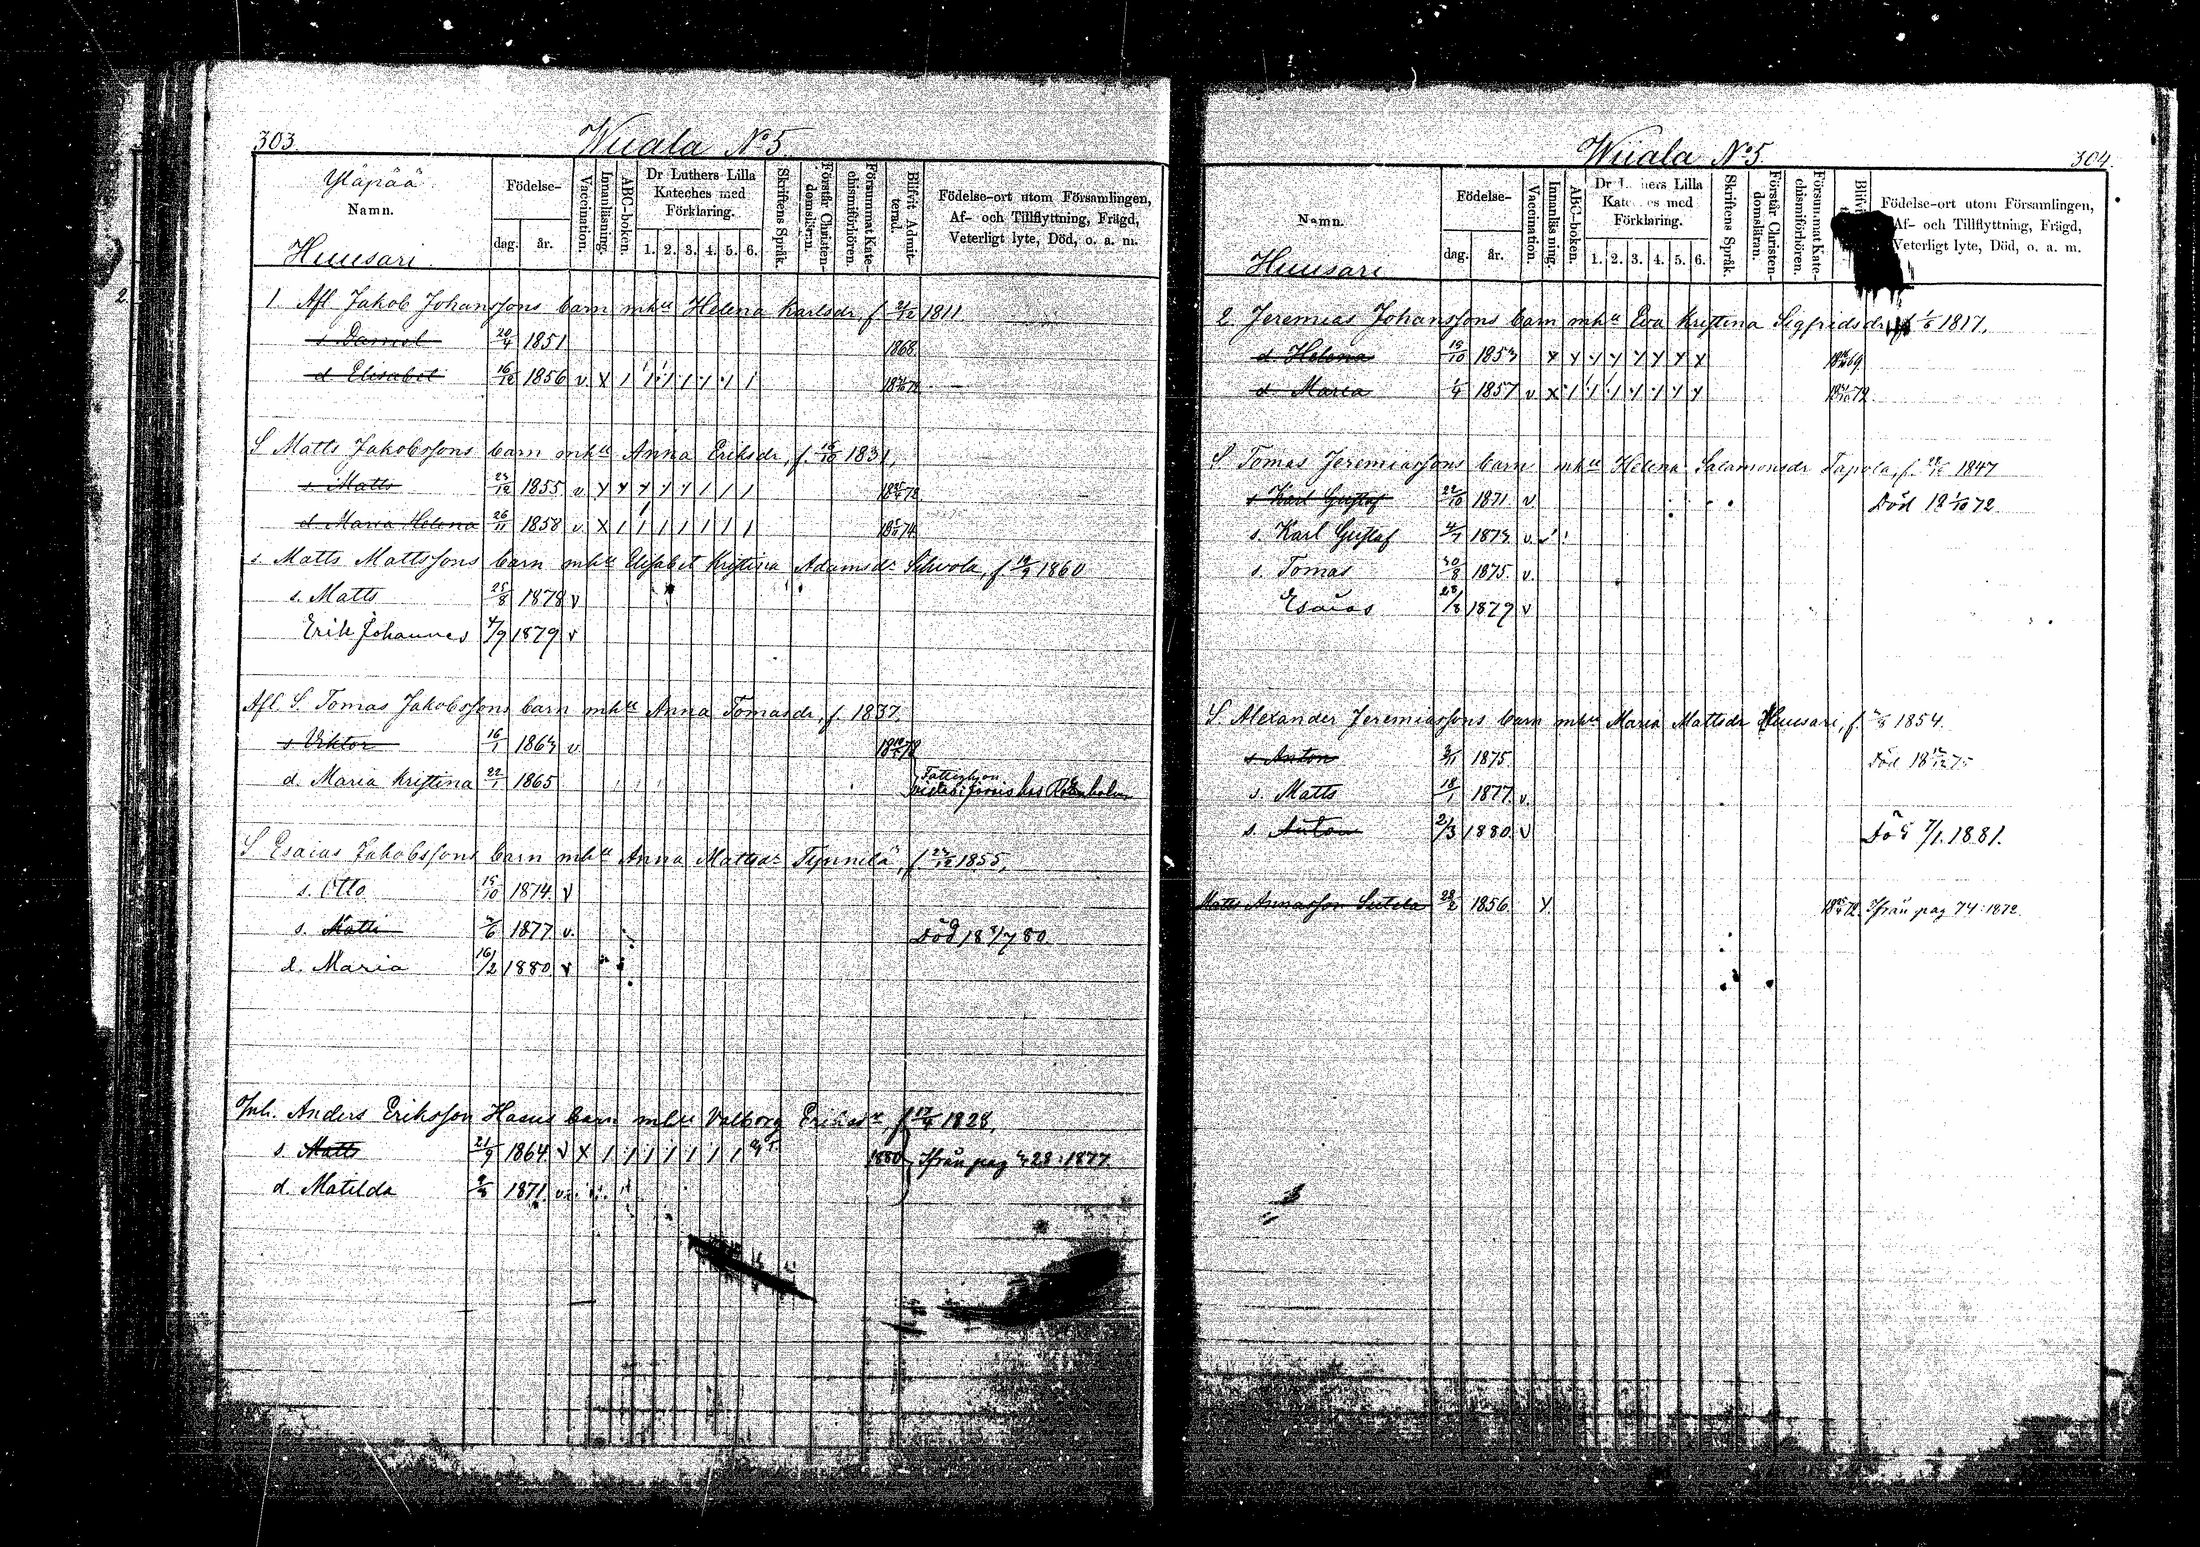 303.
Wuala No 5.
Yläpää
Namn.
Huusari.
Födelse-
dag. år.
Vaccination.
Innanläsning.
ABC-boken.
Dr Luthers Lilla
Kateches med
Förklaring.
1. 2. 3. 4. 5. 6.
Skriftens Språk.
Förstår Christen-
domsläran.
Försummat Kate-
chismiförhören.
Blifvit Admit-
terad.
Födelse-ort utom Församlingen,
Af- och Tillflyttning, Frägd,
Veterligt lyte, Död, o. a. m.
1 Afl. Jakob Johanssons barn mhu Helena Karlsdr, f. 1811
s. Daniel 20/4 1851 1868
d. Elisabet 16/12 1856 v. x
S Matts Jakobssons barn mhu Anna Eriksdr, f. 16/10 1831,
s. Matts 23/12 1855 v.
d. Maria Helena 26/11 1858 v. x
s Matts Mattssons barn mhu Elisabet Kristina Adamsdr f. 1860
s. Matts 25/8 1878 v
Erik Johannes 4/9 1879 v
Afl S. Tomas Jakobssons barn mhu Anna Tomasdr, f. 1837.
s Viktor 16/1 1863 v.
d. Maria Kristina 22/1 1865
S Esaias Jakobssons barn mhu Anna Mattsdr Tynnilä, f. 1855,
s. Otto 15/10 1874. v
s. Matti 1877 v. Död
d. Maria 16/2 1880 v
Inh. Anders Eriksson Hasus barn mhu Valborg Eriksdr, f. 1828,
s. Matts 21/9 1864 v x 1880 Ifrån pag 1877.
d. Matilda 1871. v.
Wuala No 5.
304.
Namn.
Huusari
Födelse-
dag. år.
Vaccination.
Innanläsning.
ABC-boken.
Dr hers Lilla
Kate es med
Förklaring.
1. 2. 3. 4. 5. 6.
Skriftens Språk.
Förstår Christen-
domsläran.
Försummat Kate-
chismiförhören.
Födelse-ort utom Församlingen,
Af- och Tillflyttning, Frägd,
Veterligt lyte, Död, o. a. m.
2. Jeremias Johanssons barn mhu Eva Kristina Sigfridsdr 1817.
d Helena 19/10 1853
d. Maria 1857 v x
S. Tomas Jeremiassons barn mhu Helena Salamonsdr Tapola, f. 1847
s Karl Gustaf 22/10 1871 v. Död 18 1/10 72
s. Karl Gustaf 1873 v.
s. Tomas 30/8 1875. v.
Esaias 28/8 1879 v
S. Alexander Jeremiassons barn mhu Maria Mattsdr Huusari, f. 1854.
s Anton 1875. Död
s. Matts 18/1 1877. v.
s. Anton 2/3 1880. v Död 7/1. 1881.
Matts Annasson Sutela 1856. Ifrån pag 74: 1872